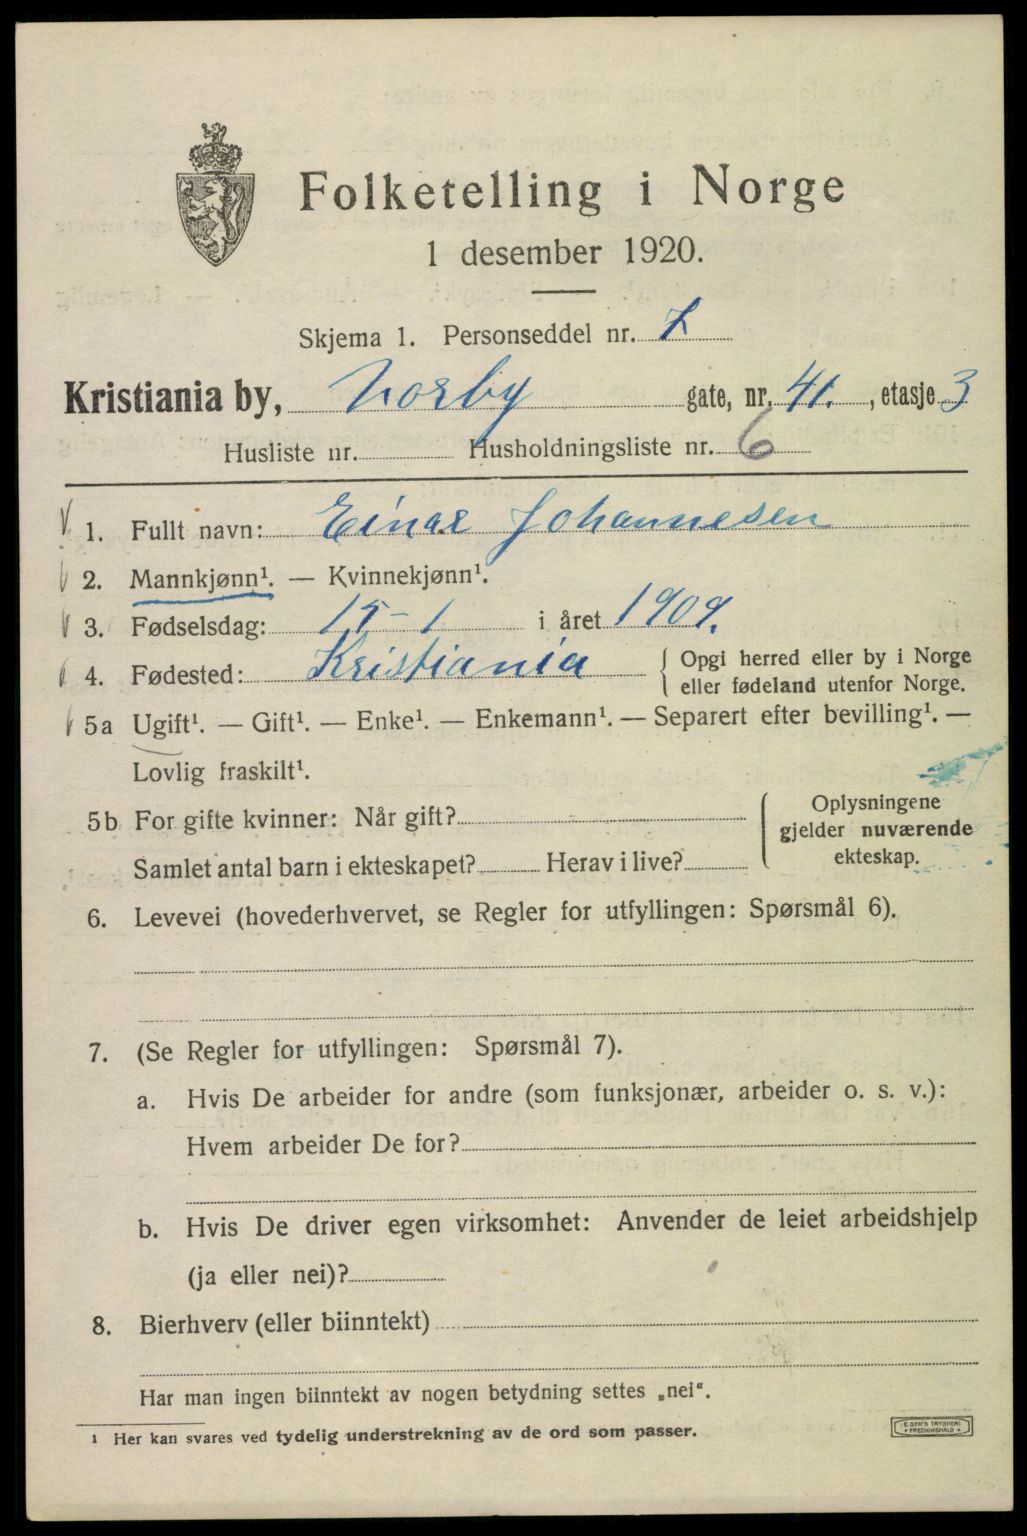 Folketelling i Norge
1 desember 1920.
Skjema 1. Personseddel nr. 7
Kristiania by, Norby gate, nr. 41. , etasje 3
Husliste nr. Husholdningsliste nr. 6
1. Fullt navn: Einar Johannesen
2. Mannkjønn¹. — Kvinnekjønn¹.
3. Fødselsdag: 15-1 i året 1909.
4. Fødested: Kristiania { Opgi herred eller by i Norge
eller fødeland utenfor Norge.
5a Ugift¹. — Gift¹. — Enke¹. — Enkemann¹. — Separert efter bevilling¹. —
Lovlig fraskilt¹.
5b For gifte kvinner: Når gift?
Samlet antal barn i ekteskapet? Herav i live?
Oplysningene
gjelder nuværende
ekteskap.
6. Levevei (hovederhvervet, se Regler for utfyllingen: Spørsmål 6).
7. (Se Regler for utfyllingen: Spørsmål 7).
a. Hvis De arbeider for andre (som funksjonær, arbeider o. s. v.):
Hvem arbeider De for?
b. Hvis De driver egen virksomhet: Anvender de leiet arbeidshjelp
(ja eller nei)?
8. Bierhverv (eller biinntekt)
Har man ingen biinntekt av nogen betydning settes „nei“.
¹ Her kan svares ved tydelig understrekning av de ord som passer.
E. SEM'S TRYKKERI
FREDRIKSHALD